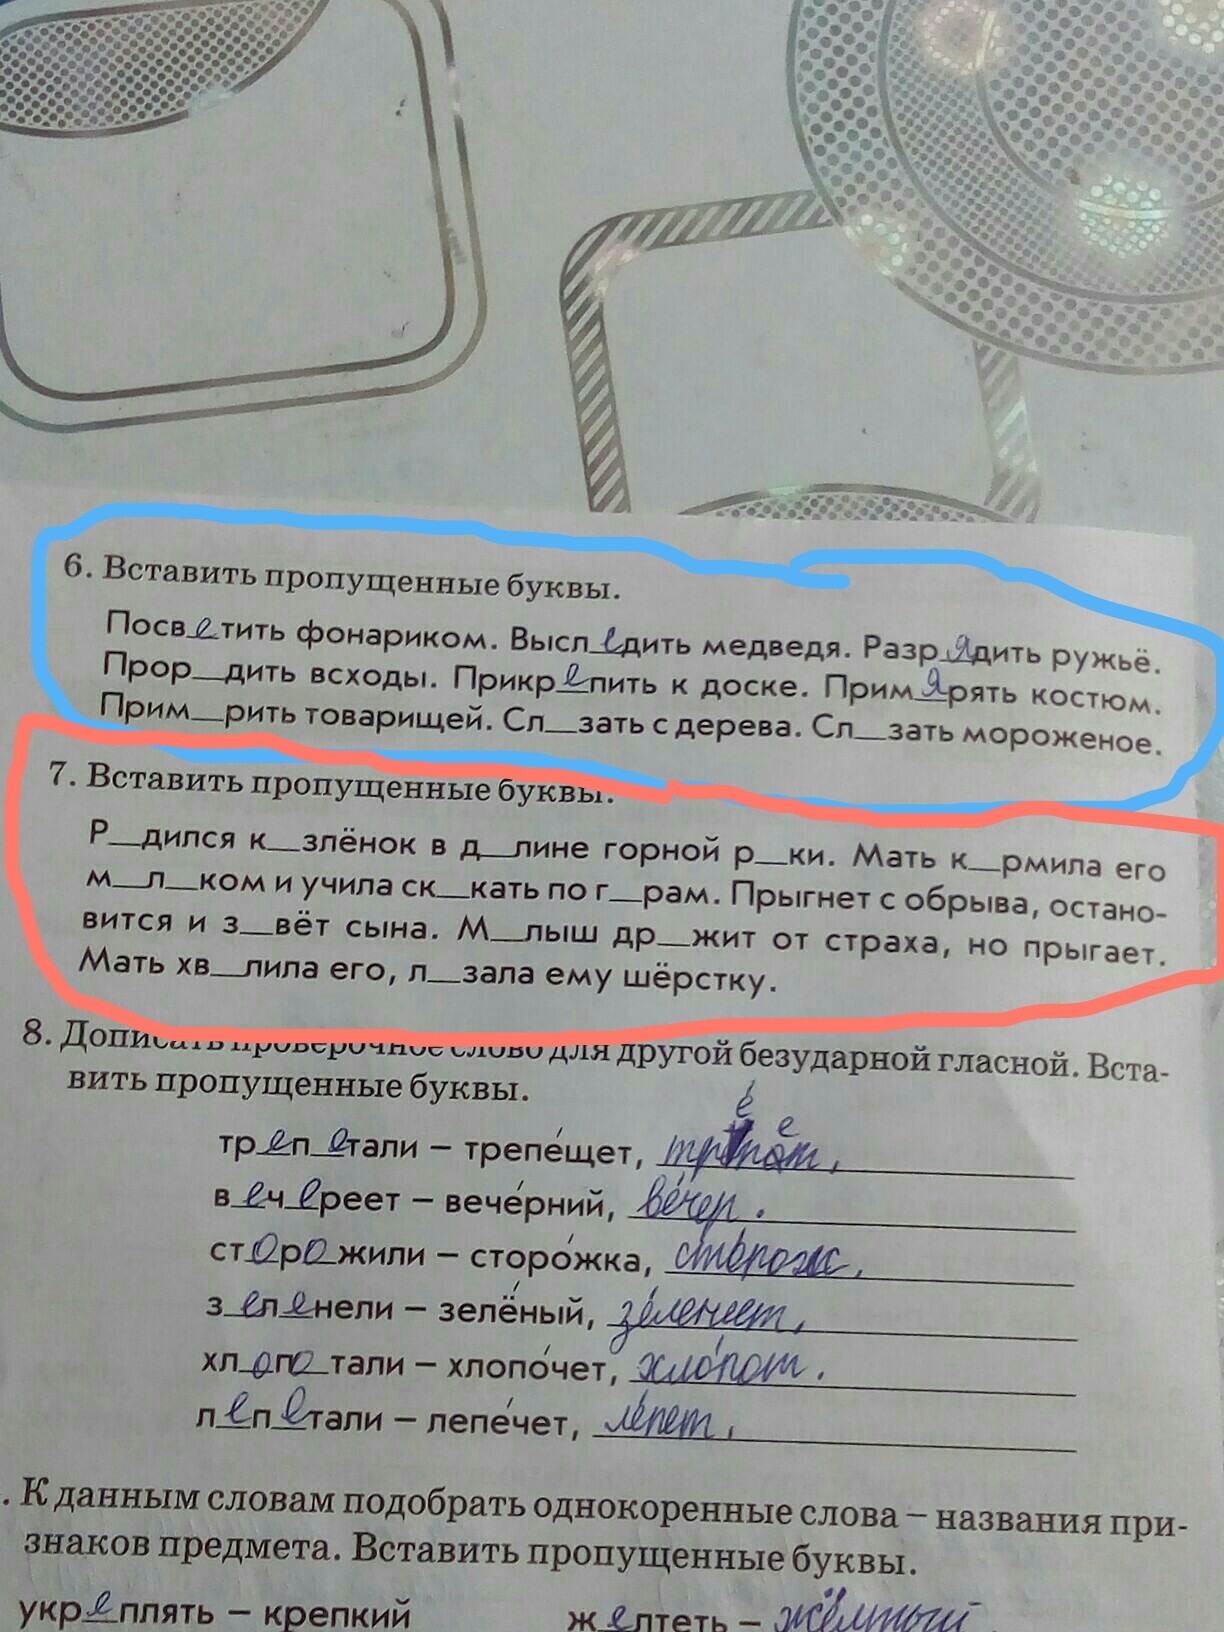 6. Вставить пропущенные буквы.
Посв_е_тить фонариком. Высл_е_дить медведя. Разр_я_дить ружьё.
Прор__дить всходы. Прикр_е_пить к доске. Прим_я_рять костюм.
Прим__рить товарищей. Сл__зать с дерева. Сл__зать мороженое.
7. Вставить пропущенные буквы.
Р__дился к__злёнок в д__лине горной р__ки. Мать к__рмила его
м__л__ком и учила ск__кать по г__рам. Прыгнет с обрыва, остано-
вится и з__вёт сына. М__лыш др__жит от страха, но прыгает.
Мать хв__лила его, л__зала ему шёрстку.
8. Дописать проверочное слово для другой безударной гласной. Вста-
вить пропущенные буквы.
тр_е_п_е_тали – трепе́щет, тре́пет.
в_е_ч_е_реет – вече́рний, ве́чер.
ст_о_р_о_жили – сторо́жка, сто́рож.
з_е_л_е_нели – зелёный, зе́ленеет.
хл_о_п_о_тали – хлопо́чет, хло́пот.
л_е_п_е_тали – лепе́чет, ле́пет.
. К данным словам подобрать однокоренные слова – названия при-
знаков предмета. Вставить пропущенные буквы.
укр_е_плять – крепкий ж_е_лтеть – жёлтый.